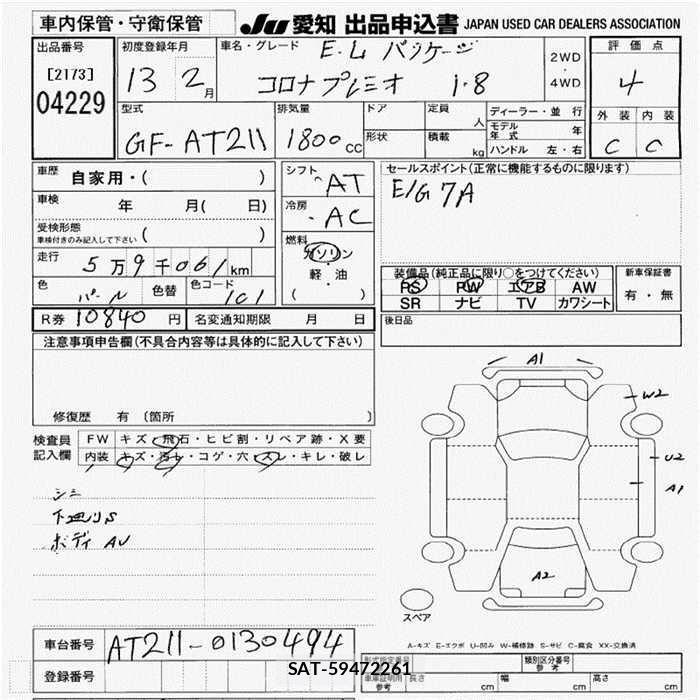 車内保管・守衛保管
JU 愛知 出品申込書 JAPAN USED CAR DEALERS ASSOCIATION
出品番号
[2173]
04229
初度登録年月
13 2月
車名・グレード
E.Lパッケージ
コロナプレミオ 1.8
2WD
・
4WD
評価点
4
外装 内装
C C
型式
GF-AT211
排気量
1800CC
ドア
形状
定員 人
積載 kg
ディーラー・並行
モデル年式 年
ハンドル 左・右
車歴 自家用・( )
車検 年 月( 日)
受検形態
車検付きのみ記入して下さい ( )
走行 5万9千061km
色 パール 色替 色コード 1C1
シフト AT
冷房 AC
燃料
ガソリン
軽・油
( )
セールスポイント(正常に機能するものに限ります)
E/G 7A
装備品(純正品に限り○をつけてください)
PS PW エアB AW
SR ナビ TV カワシート
新車保証書
有・無
R券 10840円 名変通知期限 月 日
後日品
注意事項申告欄(不具合内容等は具体的に記入して下さい)
修復歴 有 〔箇所 〕
検査員
記入欄
FW キズ・飛石・ヒビ割・リペア跡・X要
内装 キズ・汚レ・コゲ・穴・スレ・キレ・破レ
シミ
下廻りS
ボディ AU
A1
W2
U2
A1
A2
スペア
A-キズ E-エクボ U-凹み W-補修跡 S-サビ C-腐食 XX-交換済
車台番号 AT211-0130494
登録番号
SAT-59472261
型式指定番号 類別区分番号
参考
車庫証明用
参考
長さ cm 幅 cm 高さ cm